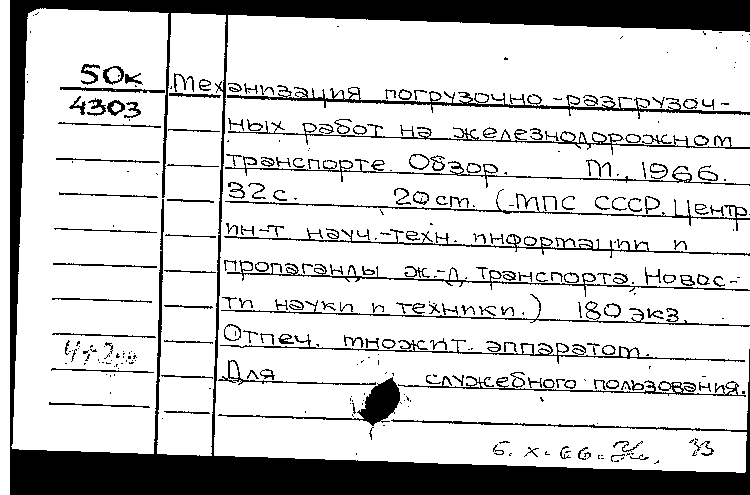 50к
4303
Механизация погрузочно-разгрузоч-
ных работ на железнодорожном
транспорте. Обзор. М., 1966.
32 с. 20 см. (МПС СССР. Центр.
ин-т науч.-техн. информации и
пропаганды ж.-д. транспорта. Новос-
ти науки и техники.) 180 экз.
Отпеч. множит. аппаратом.
Для служебного пользования.
6.X.66.
33